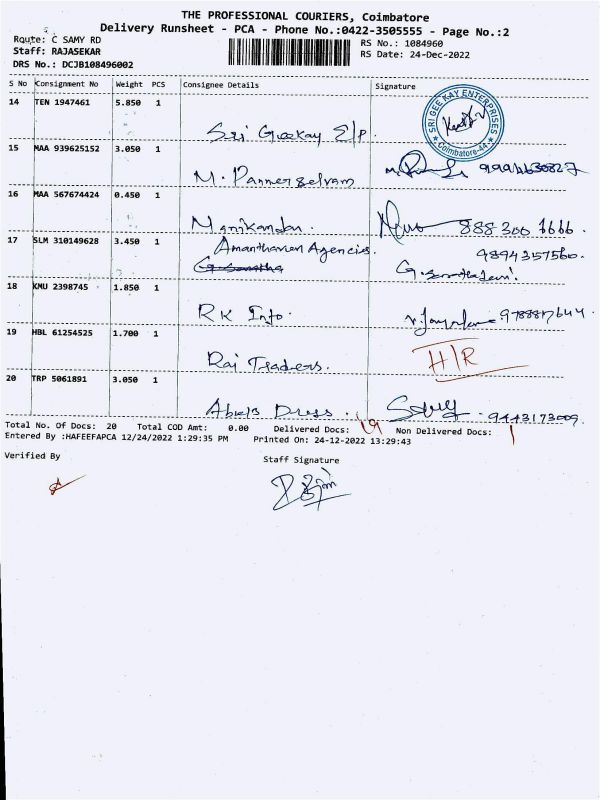 THE PROFESSIONAL COURIERS, Coimbatore
Delivery Runsheet - PCA - Phone No.:0422-3505555 - Page No.:2
Route: C SAMY RD
RS No.: 1084960
Staff: RAJASEKAR
RS Date: 24-Dec-2022
DRS No.: DCJB108496002
S No Consignment No Weight PCS Consignee Details Signature
14 TEN 1947461 5.850 1
SRI GEE KAY ENTERPRISES
Coimbatore-44
Sri Geekay E/P.
15 MAA 939625152 3.050 1
M. Pannerselvam
16 MAA 567674424 0.450 1
Manikandan. 888 300 6666.
17 SLM 310149628 3.450 1
Agencies. 9894357560.
18 KMU 2398745 1.850 1
RK Info.
19 HBL 61254525 1.700 1
Raj Traders. H/R
20 TRP 5061891 3.050 1
Dress. 9443173009.
Total No. Of Docs: 20 Total COD Amt: 0.00 Delivered Docs: 19 Non Delivered Docs: 1
Entered By :HAFEEFAPCA 12/24/2022 1:29:35 PM Printed On: 24-12-2022 13:29:43
Verified By Staff Signature